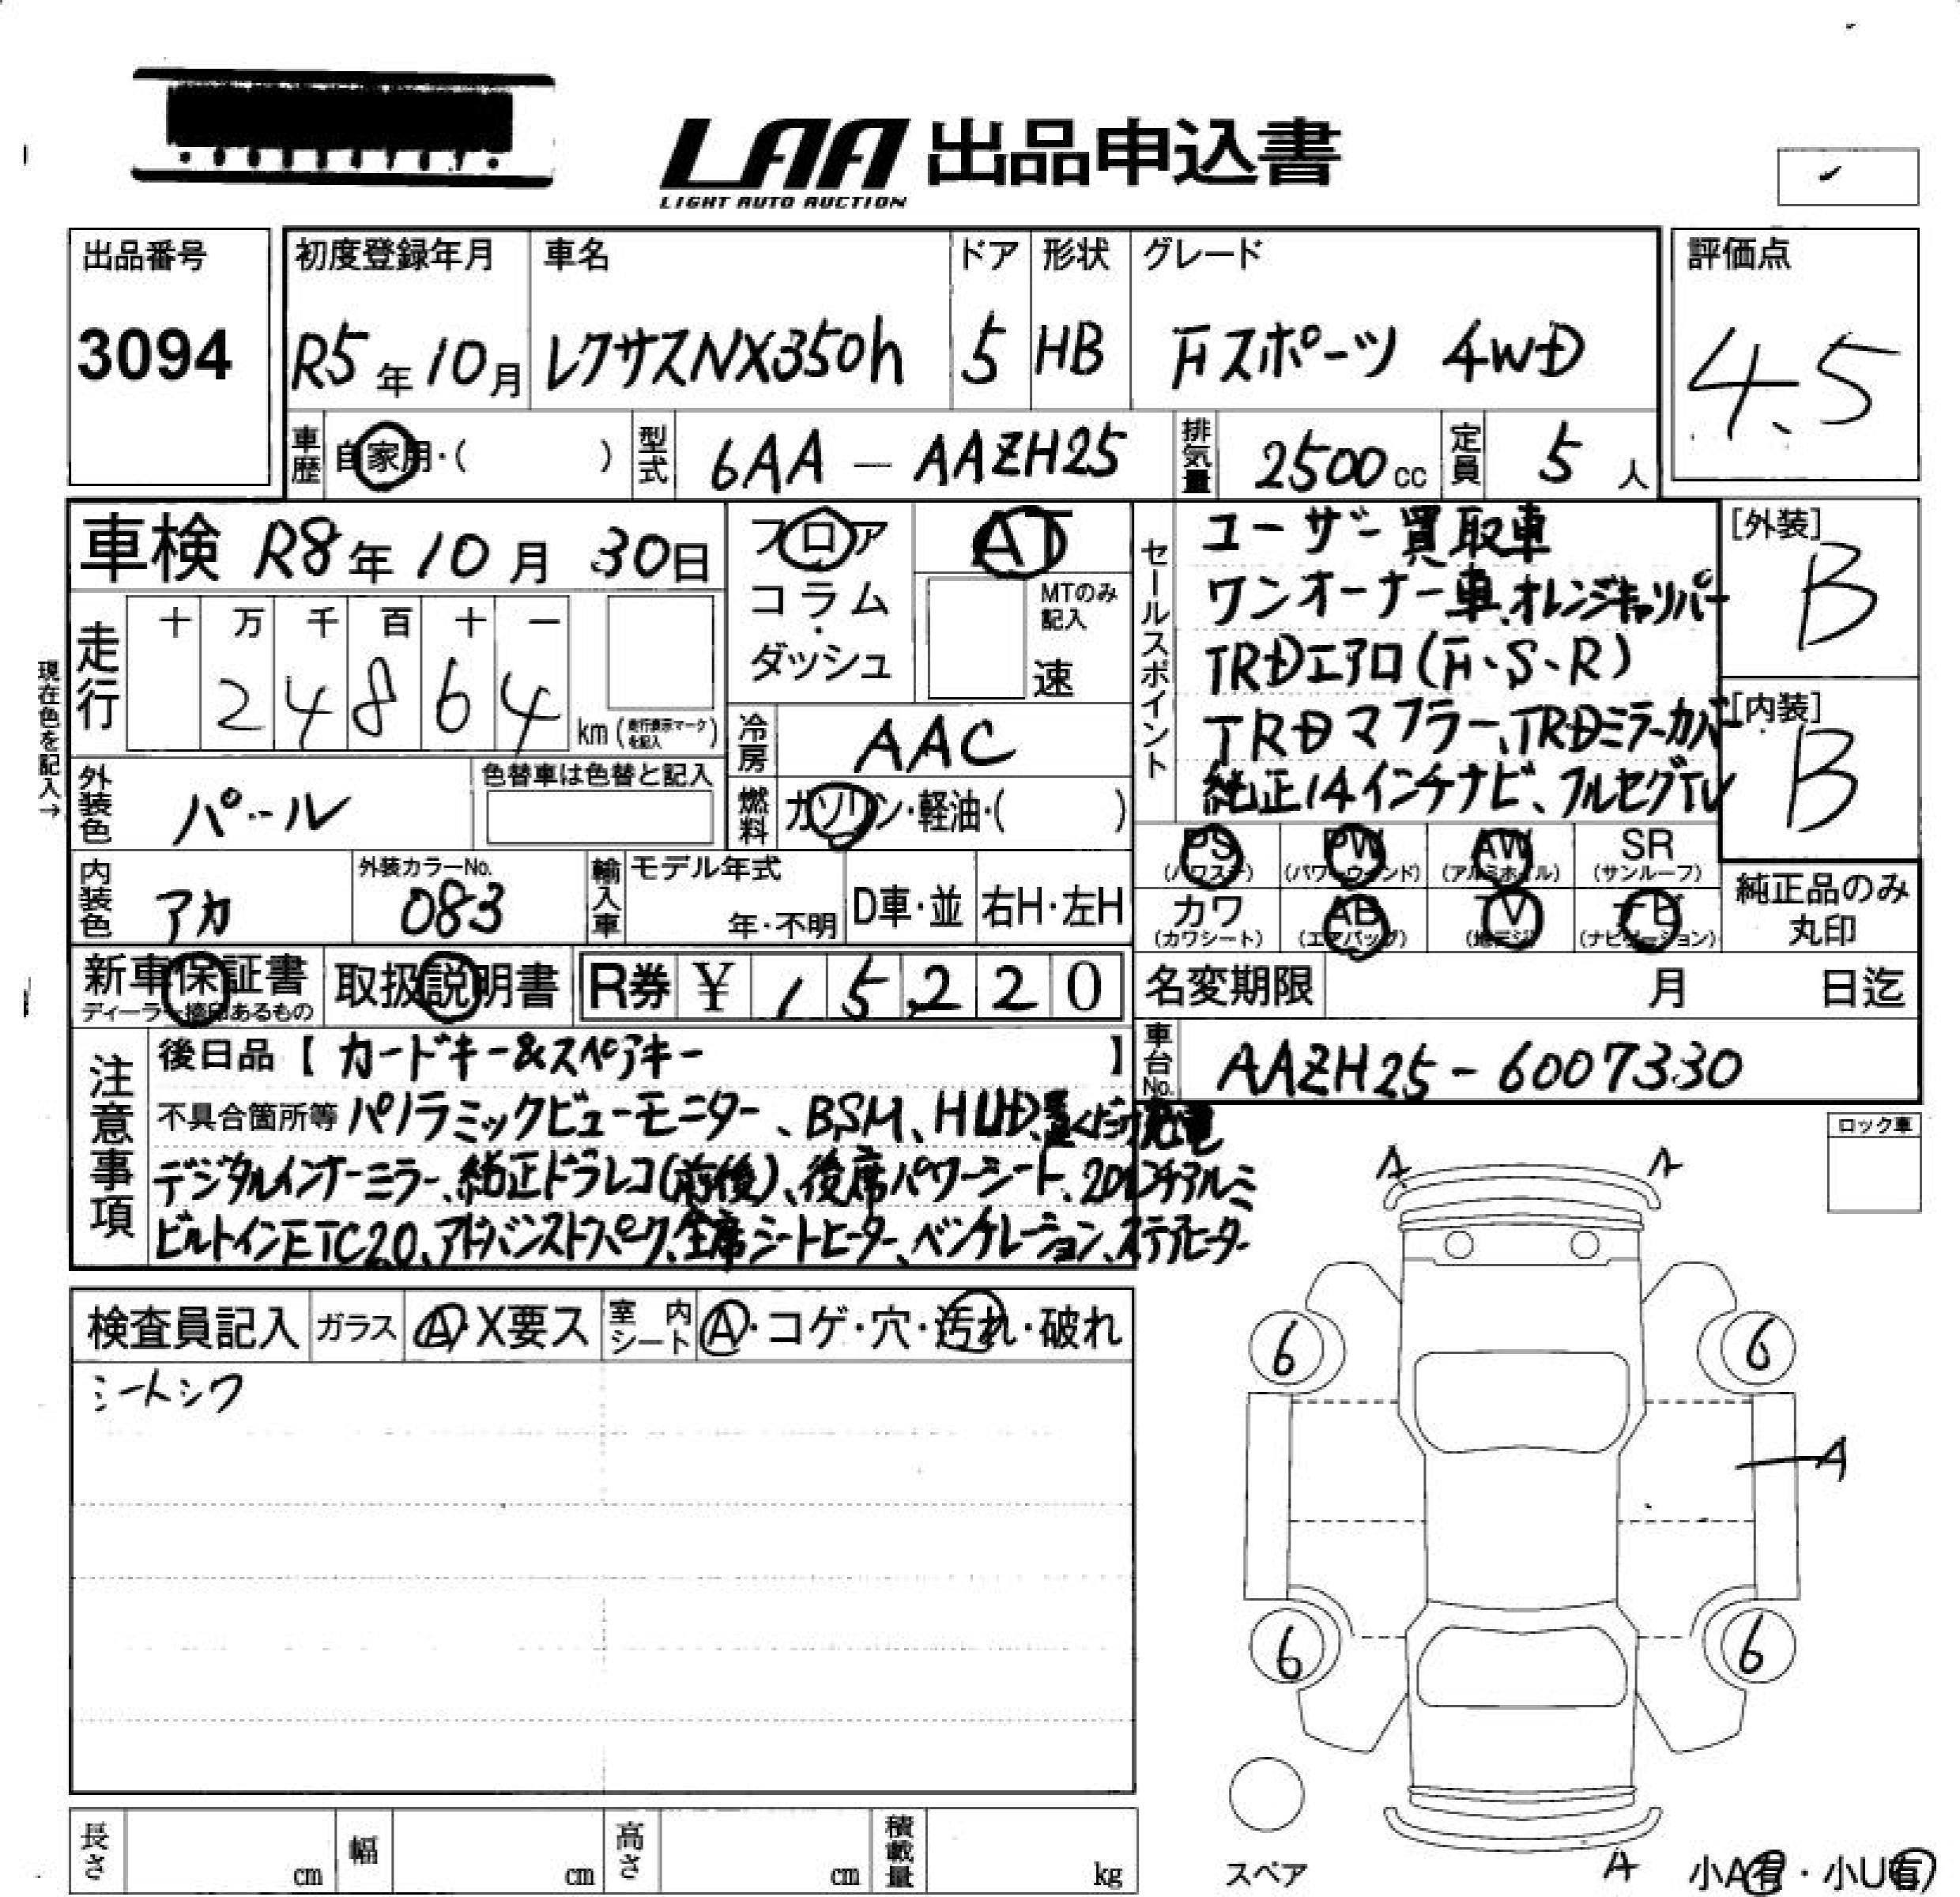 LAA 出品申込書
LIGHT AUTO AUCTION
出品番号 初度登録年月 車名 ドア 形状 グレード 評価点
3094 R5年10月 レクサスNX350h 5 HB Fスポーツ 4WD 4.5
車歴 自家用・( ) 型式 6AA-AAZH25 排気量 2500cc 定員 5人
車検 R8年10月30日
フロア
コラム・ダッシュ
AT
MTのみ記入
速
セールスポイント
ユーザー買取車
ワンオーナー車、オレンジキャリパー
TRDエアロ(F、S、R)
TRDマフラー、TRDミラーカバー
純正14インチナビ、フルセグTV
[外装]
B
[内装]
B
現在色を記入→
走行 十 万 千 百 十 一
2 4 8 6 4 km (走行表示マークを記入)
冷房 AAC
外装色 パール 色替車は色替と記入
燃料 ガソリン・軽油・( )
PS (パワステ) PW (パワーウインド) AW (アルミホイル) SR (サンルーフ)
カワ (カワシート) AB (エアバッグ) TV (地デジ) ナビ (ナビゲーション)
純正品のみ丸印
内装色 アカ 外装カラーNo. 083 輸入車 モデル年式 年・不明 D車・並 右H・左H
新車保証書 ディーラー捺印あるもの 取扱説明書 R券 ¥ 15,220
名変期限 月 日迄
車台No. AAZH25-6007330
注意事項
後日品【 カードキー&スペアキー 】
不具合箇所等 パノラミックビューモニター、BSM、HUD、置くだけ充電
デジタルインナーミラー、純正ドラレコ(前後)、後席パワーシート、20インチアルミ
ビルトインETC2.0、アドバンストパーク、全席シートヒーター、ベンチレーション、ステアヒーター
ロック車
検査員記入 ガラス A・X要ス 室内シート A・コゲ・穴・汚れ・破れ
シートシワ
A A
6 6
A
6 6
スペア
A
小A有・小U有
長さ cm 幅 cm 高さ cm 積載量 kg